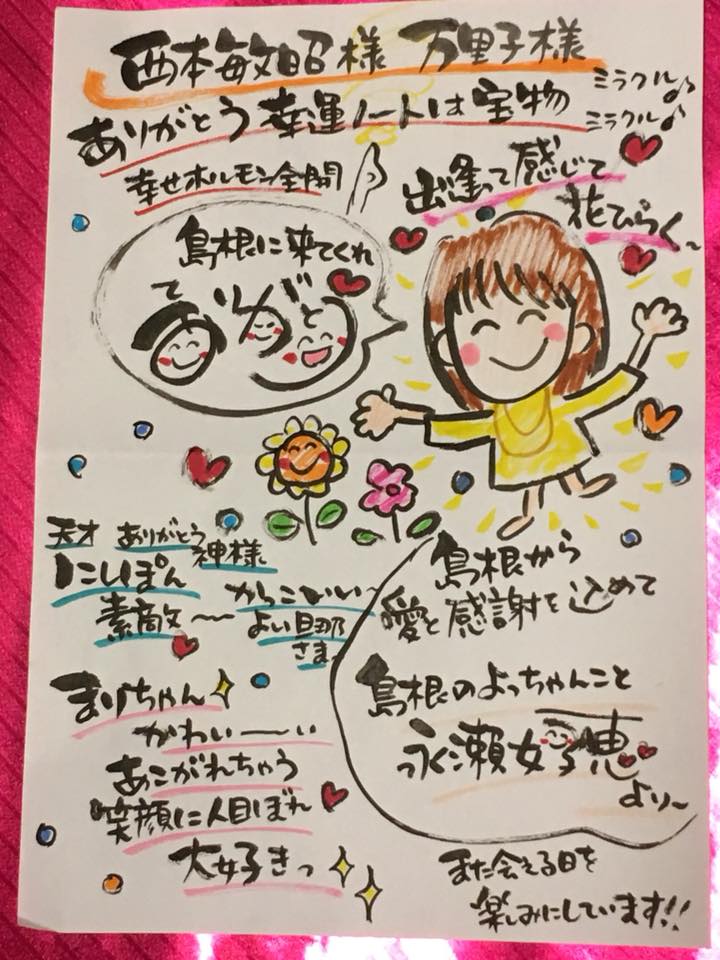 西本敏昭様 万里子様
ありがとう 幸運ノートは宝物
ミラクル♪
ミラクル♪
幸せホルモン全開
出逢って感じて
花ひらく~
島根に来てくれ
て
ありがとう
天才 ありがとう
神様
にしぽん
素敵~
かっこいい~
よい旦那
さまっ
まりちゃん
かわい~い
あこがれちゃう
笑顔に一目ぼれ
大好きっ
島根から
愛と感謝を込めて
島根のよっちゃんこと
永瀬好恵
より~
また会える日を
楽しみにしています!!